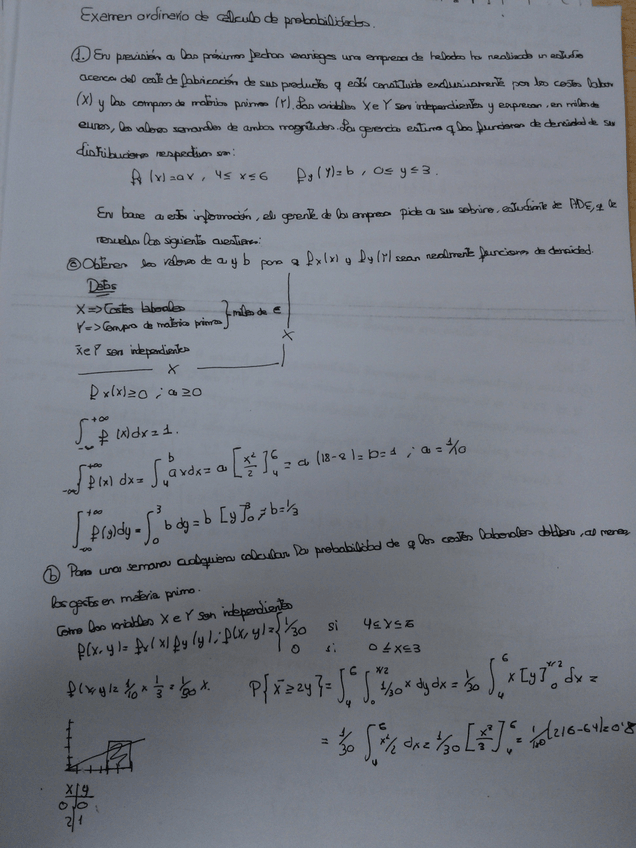 Examen ordinario de cálculo de probabilidades.
① En previsión a las próximas fechas veraniegas una empresa de helados ha realizado un estudio
acerca del coste de fabricación de sus productos q está constituido exclusivamente por los costes labor
(X) y las compras de materias primas (Y). Las variables X e Y son independientes y expresan, en miles de
euros, los valores semanales de ambas magnitudes. La gerencia estima q las funciones de densidad de sus
distribuciones respectivas son:
fx(x)=ax, 4≤x≤6 fy(y)=b, 0≤y≤3.
En base a esta información, el gerente de la empresa pide a su sobrino, estudiante de ADE, q le
resuelva las siguientes cuestiones:
ⓐ Obtener los valores de a y b para q fx(x) y fy(y) sean realmente funciones de densidad.
Datos
X => Costes laborales
Y => Compra de materias primas } miles de €
X e Y son independientes
X
X
fx(x)≥0 ; a≥0
∫-∞^+∞ f(x)dx=1.
∫-∞^+∞ f(x) dx = ∫4^b axdx = a [x²/2]4^6 = a (18-8) = b = 1 ; a = 1/10
∫-∞^+∞ f(y)dy = ∫0^3 b dy = b [y]0^3 ; b = 1/3
ⓑ Para una semana cualquiera calcular la probabilidad de q los costes laborales doblen, al menos,
los gastos en materia prima.
Como las variables X e Y son independientes
f(x,y) = fx(x) fy(y) ; f(x,y) = { 1/30 si 4≤x≤6
0 si 0≤x≤3
f(x,y) = 1/10 x 1/3 = 1/30 x. P{x≥2y} = ∫4^6 ∫0^x/2 1/30 x dy dx = 1/30 ∫4^6 x [y]0^x/2 dx =
= 1/30 ∫4^6 x²/2 dx = 1/30 [x³/3]4^6 = (216-64) = 0'8
x|y
0|0
2|1